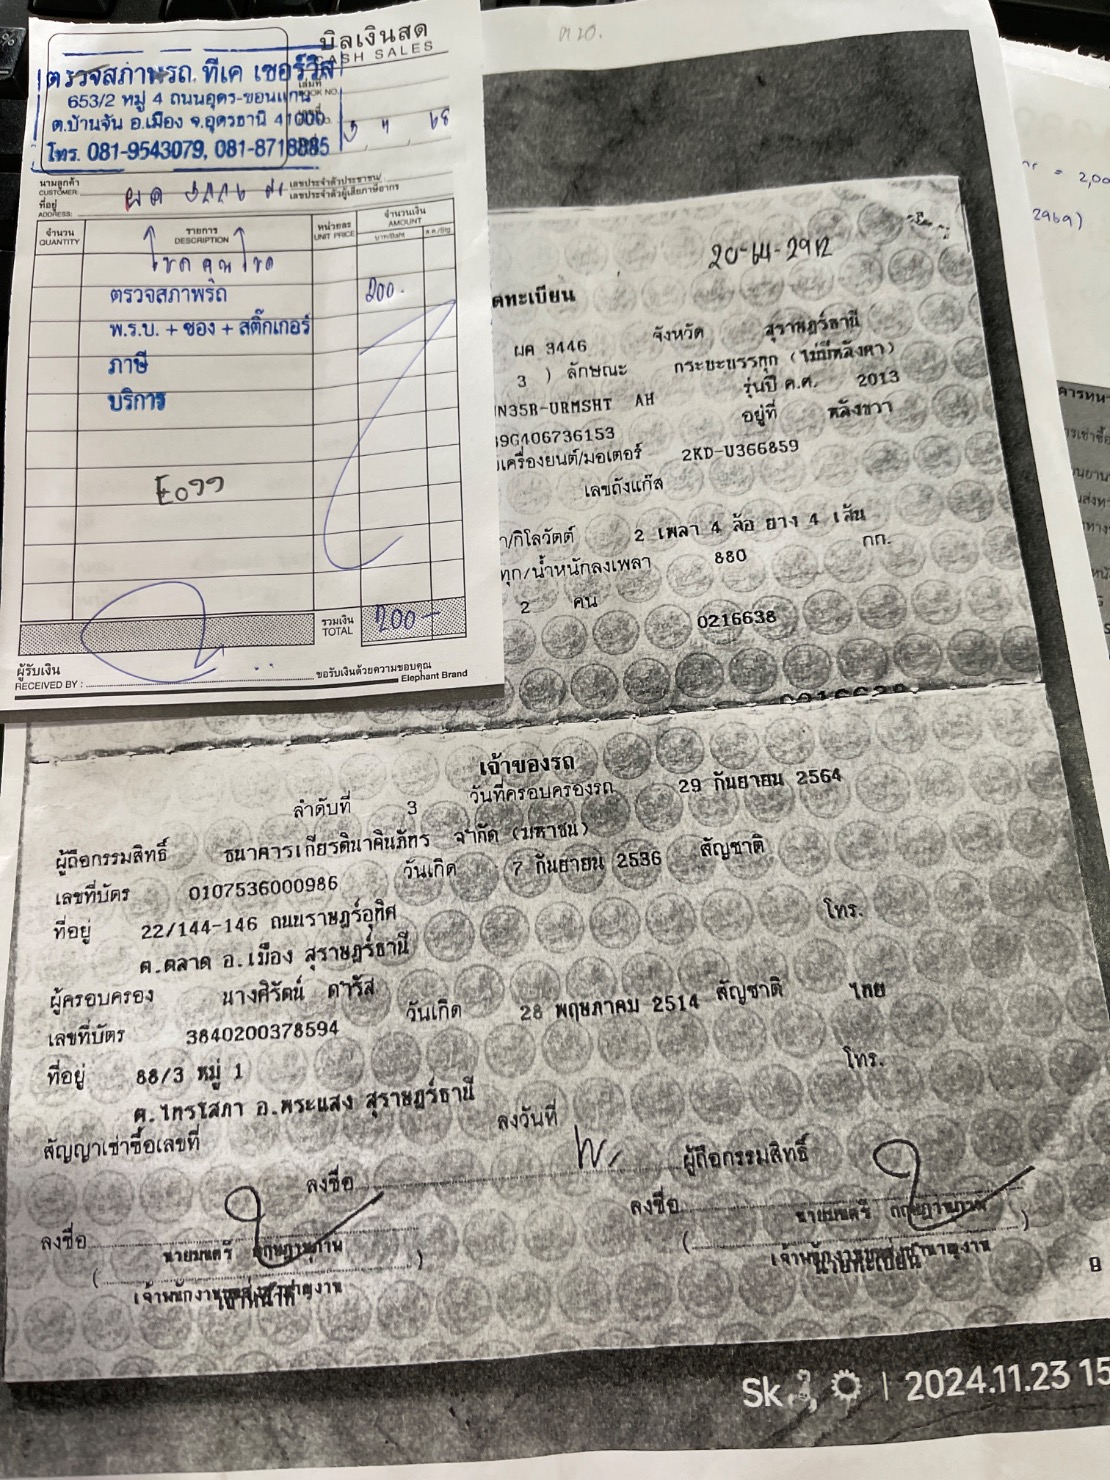 บิลเงินสด
CASH SALES
ตรวจสภาพรถ ทีเค เซอร์วิส
653/2 หมู่ 4 ถนนอุดร-ขอนแก่น
ต.บ้านจั่น อ.เมือง จ.อุดรธานี 41000
โทร. 081-9543079, 081-8718885
นามลูกค้า
CUSTOMER
เลขประจำตัวประชาชน/
เลขประจำตัวผู้เสียภาษีอากร
ที่อยู่
ADDRESS:
จำนวน
QUANTITY
รายการ
DESCRIPTION
หน่วยละ
UNIT PRICE
จำนวนเงิน
AMOUNT
ตรวจสภาพรถ 200.-
พ.ร.บ. + ซอง + สติ๊กเกอร์
ภาษี
บริการ
รวมเงิน
TOTAL
200 -
ผู้รับเงิน
RECEIVED BY :
ขอรับเงินด้วยความขอบคุณ
Elephant Brand
20-64-2912
ดทะเบียน
ผค 3446 จังหวัด สุราษฎร์ธานี
3 ) ลักษณะ กระบะบรรทุก (ไม่มีหลังคา)
N35R-URMSHT AH รุ่นปี ค.ศ. 2013
9G406736153 อยู่ที่
เครื่องยนต์/มอเตอร์ 2KD-U366859
เลขถังแก๊ส
/กิโลวัตต์ 2 เพลา 4 ล้อ ยาง 4 เส้น
ทุก/น้ำหนักลงเพลา 880 กก.
2 คน
0216638
เจ้าของรถ
ลำดับที่ 3 วันที่ครอบครองรถ 29 กันยายน 2564
ผู้ถือกรรมสิทธิ์ ธนาคารเกียรตินาคินภัทร จำกัด (มหาชน)
เลขที่บัตร 0107536000986 วันเกิด 7 กันยายน 2536 สัญชาติ
ที่อยู่ 22/144-146 ถนนราษฎร์อุทิศ โทร.
ต.ตลาด อ.เมือง สุราษฎร์ธานี
ผู้ครอบครอง นางศิรัตน์ ดำรัส
เลขที่บัตร 3840200378594 วันเกิด 28 พฤษภาคม 2514 สัญชาติ ไทย
ที่อยู่ 88/3 หมู่ 1 โทร.
ต.ไทรโสภา อ.พระแสง สุราษฎร์ธานี
สัญญาเช่าซื้อเลขที่ ลงวันที่
ลงชื่อ ผู้ถือกรรมสิทธิ์
ลงชื่อ ลงชื่อ
นายมนตรี นายมนตรี
2024.11.23 15